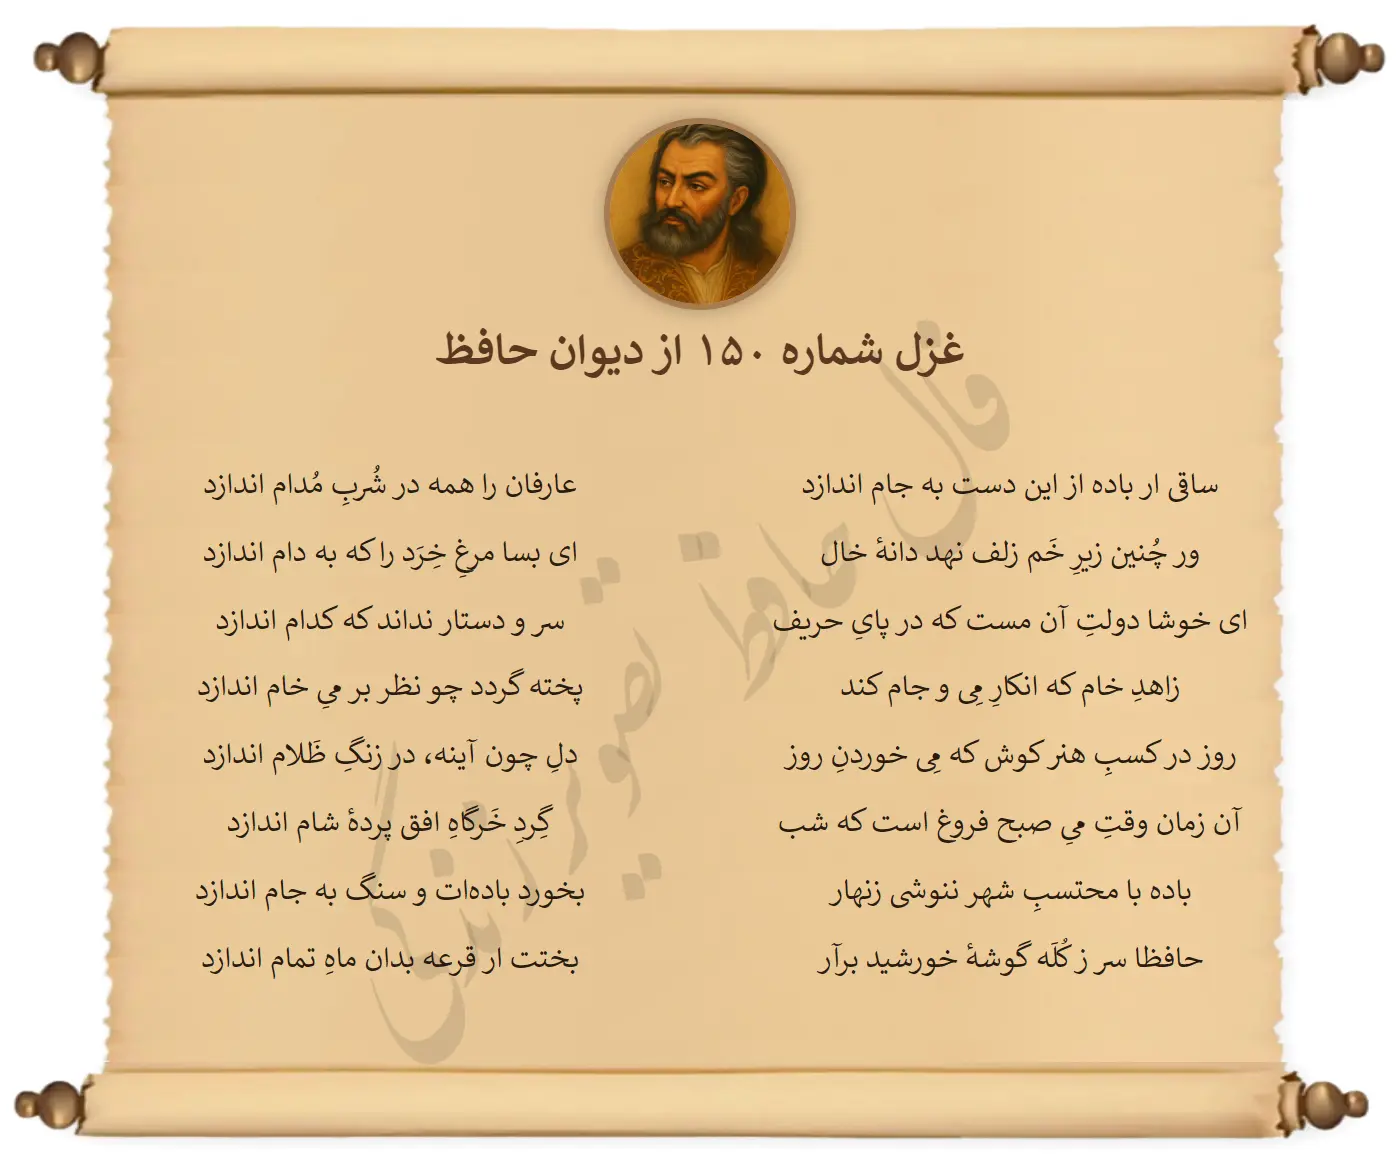 غزل شماره ۱۵۰ از دیوان حافظ
ساقی ار باده از این دست به جام اندازد عارفان را همه در شُربِ مُدام اندازد
ور چُنین زیرِ خَم زلف نهد دانهٔ خال ای بسا مرغِ خِرَد را که به دام اندازد
ای خوشا دولتِ آن مست که در پایِ حریف سر و دستار نداند که کدام اندازد
زاهدِ خام که انکارِ مِی و جام کند پخته گردد چو نظر بر میِ خام اندازد
روز در کسبِ هنر کوش که مِی خوردنِ روز دلِ چون آینه، در زنگِ ظَلام اندازد
آن زمان وقتِ میِ صبح فروغ است که شب گِردِ خَرگاهِ افق پردهٔ شام اندازد
باده با محتسبِ شهر ننوشی زنهار بخورد باده‌ات و سنگ به جام اندازد
حافظا سر ز کُلَه گوشهٔ خورشید برآر بختت ار قرعه بدان ماهِ تمام اندازد
فال حافظ تصویر زندگی